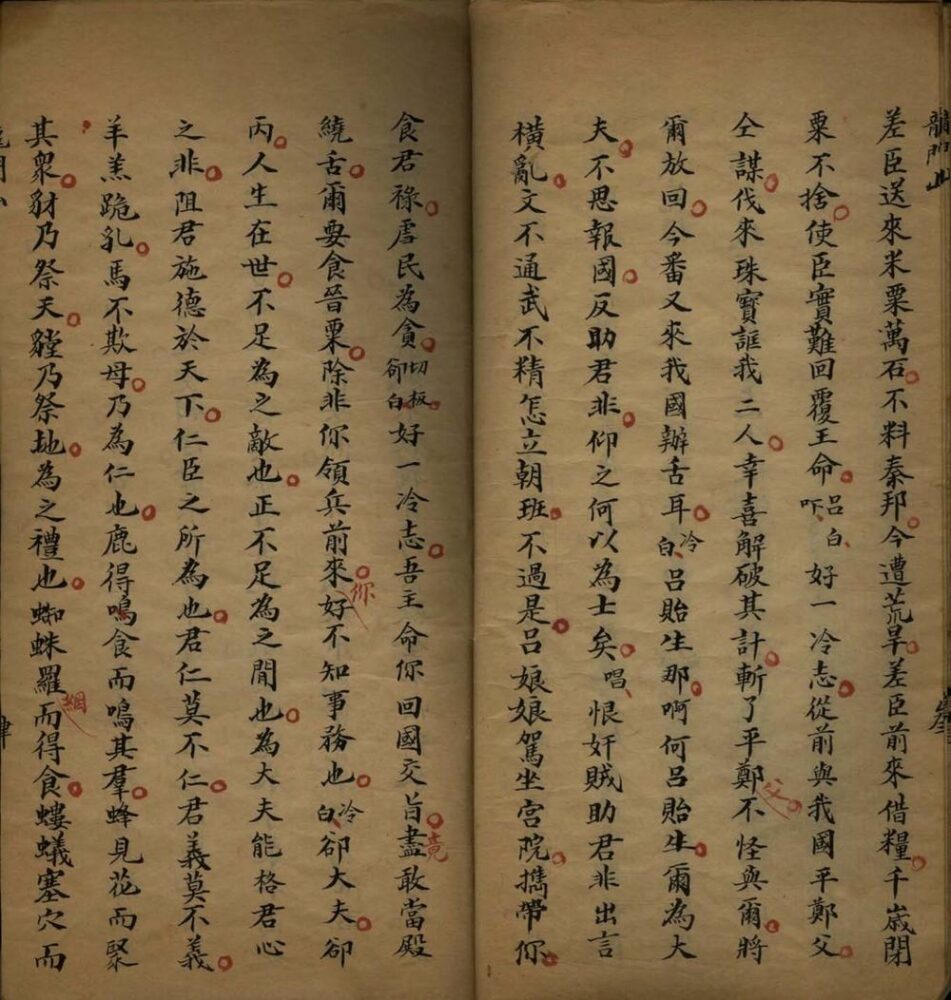 龍門山
差臣送來米粟萬石不料秦邦今遭荒旱差臣前來借糧千歲閉
粟不捨使臣實難回覆王命呂白吓好一冷志從前與我國平鄭父
仝謀伐來珠寶誆我二人幸喜解破其計斬了平鄭父不怪與爾將
爾放回今番又來我國辦舌耳冷白呂貽生那啊何呂貽生爾為大
夫不思報國反助君非仰之何以為士矣唱恨奸賊助君非出言
橫亂文不通武不精怎立朝班不過是呂娘娘駕坐宮院擕帶你
食君祿虐民為貪切板郤白好一冷志吾主命你回國交旨盡竟敢當殿
繞舌爾要食晉粟除非你領兵前來好你不知事務也冷白郤大夫郤
丙人生在世不足為之敵也正不足為之間也為大夫能格君心
之非阻君施德於天下仁臣之所為也君仁莫不仁君義莫不義
羊羔跪乳馬不欺母乃為仁也鹿得鳴食而鳴其羣蜂見花而聚
其衆豺乃祭天獺乃祭地為之禮也蜘蛛羅網而得食螻蟻塞穴而